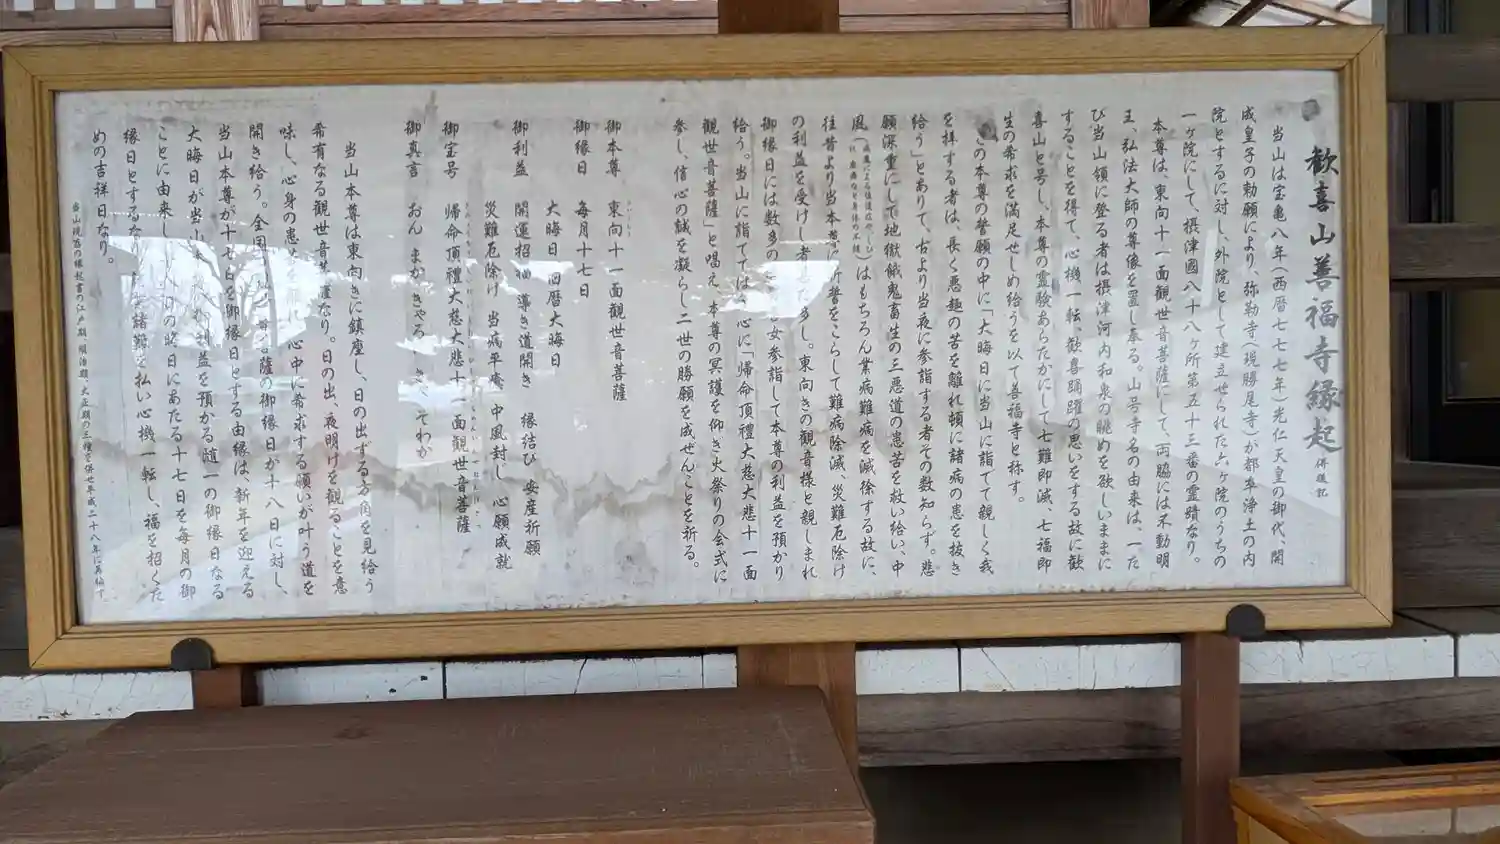 歓喜山善福寺縁起 併略記
当山は宝亀八年(西暦七七七年)光仁天皇の御代、開
成皇子の勅願により、弥勒寺(現勝尾寺)が都率浄土の内
院とするに対し、外院として建立せられた六ヶ院のうちの
一ヶ院にして、摂津國八十八ヶ所第五十三番の霊蹟なり。
本尊は、東向十一面観世音菩薩にして、両脇には不動明
王、弘法大師の尊像を置し奉る。山号寺名の由来は、一た
び当山領に登る者は摂津河内和泉の眺めを欲しいままに
することを得て、心機一転、歓喜踊躍の思いをする故に歓
喜山と号し、本尊の霊験あらたかにして七難即滅、七福即
生の希求を満足せしめ給うを以て善福寺と称す。
この本尊の誓願の中に「大晦日に当山に詣でて親しく我
を拝する者は、長く悪趣の苦を離れ頓に諸病の患を抜き
給う」とありて、古より当夜に参詣する者その数知らず。悲
願深重にして地獄餓鬼畜生の三悪道の患苦を救い給い、中
風はもちろん業病難病を滅除する故に、
往昔より当本尊に祈誓をこらして難病除滅、災難厄除け
の利益を受けし者甚だ多し。東向きの観音様と親しまれ
御縁日には数多の女参詣して本尊の利益を預かり
給う。当山に詣でては心に「帰命頂禮大慈大悲十一面
観世音菩薩」と唱え、本尊の冥護を仰き火祭りの会式に
参し、信心の誠を凝らし二世の勝願を成ぜんことを祈る。
御本尊 東向十一面観世音菩薩
御縁日 毎月十七日
大晦日 旧暦大晦日
御利益 開運招福 導き道開き 縁結び 安産祈願
災難厄除け 当病平癒 中風封じ 心願成就
御宝号 帰命頂禮大慈大悲十一面観世音菩薩
御真言 おん まか きゃろ にきゃ そわか
当山本尊は東向きに鎮座し、日の出ずる方角を見給う
希有なる観世音菩薩なり。日の出、夜明けを観ることを意
味し、心身の患い 心中に希求する願いが叶う道を
開き給う。全国 菩薩の御縁日が十八日に対し、
当山本尊が十七日を御縁日とする由縁は、新年を迎える
大晦日が当山 利益を預かる随一の御縁日なる
ことに由来し 日の昨日にあたる十七日を毎月の御
縁日とするなり 諸難を払い心機一転し、福を招くた
めの吉祥日なり。
当山現蔵の縁起書の江戸期、明治期、大正期の三種を併せ平成二十八年に再編す。